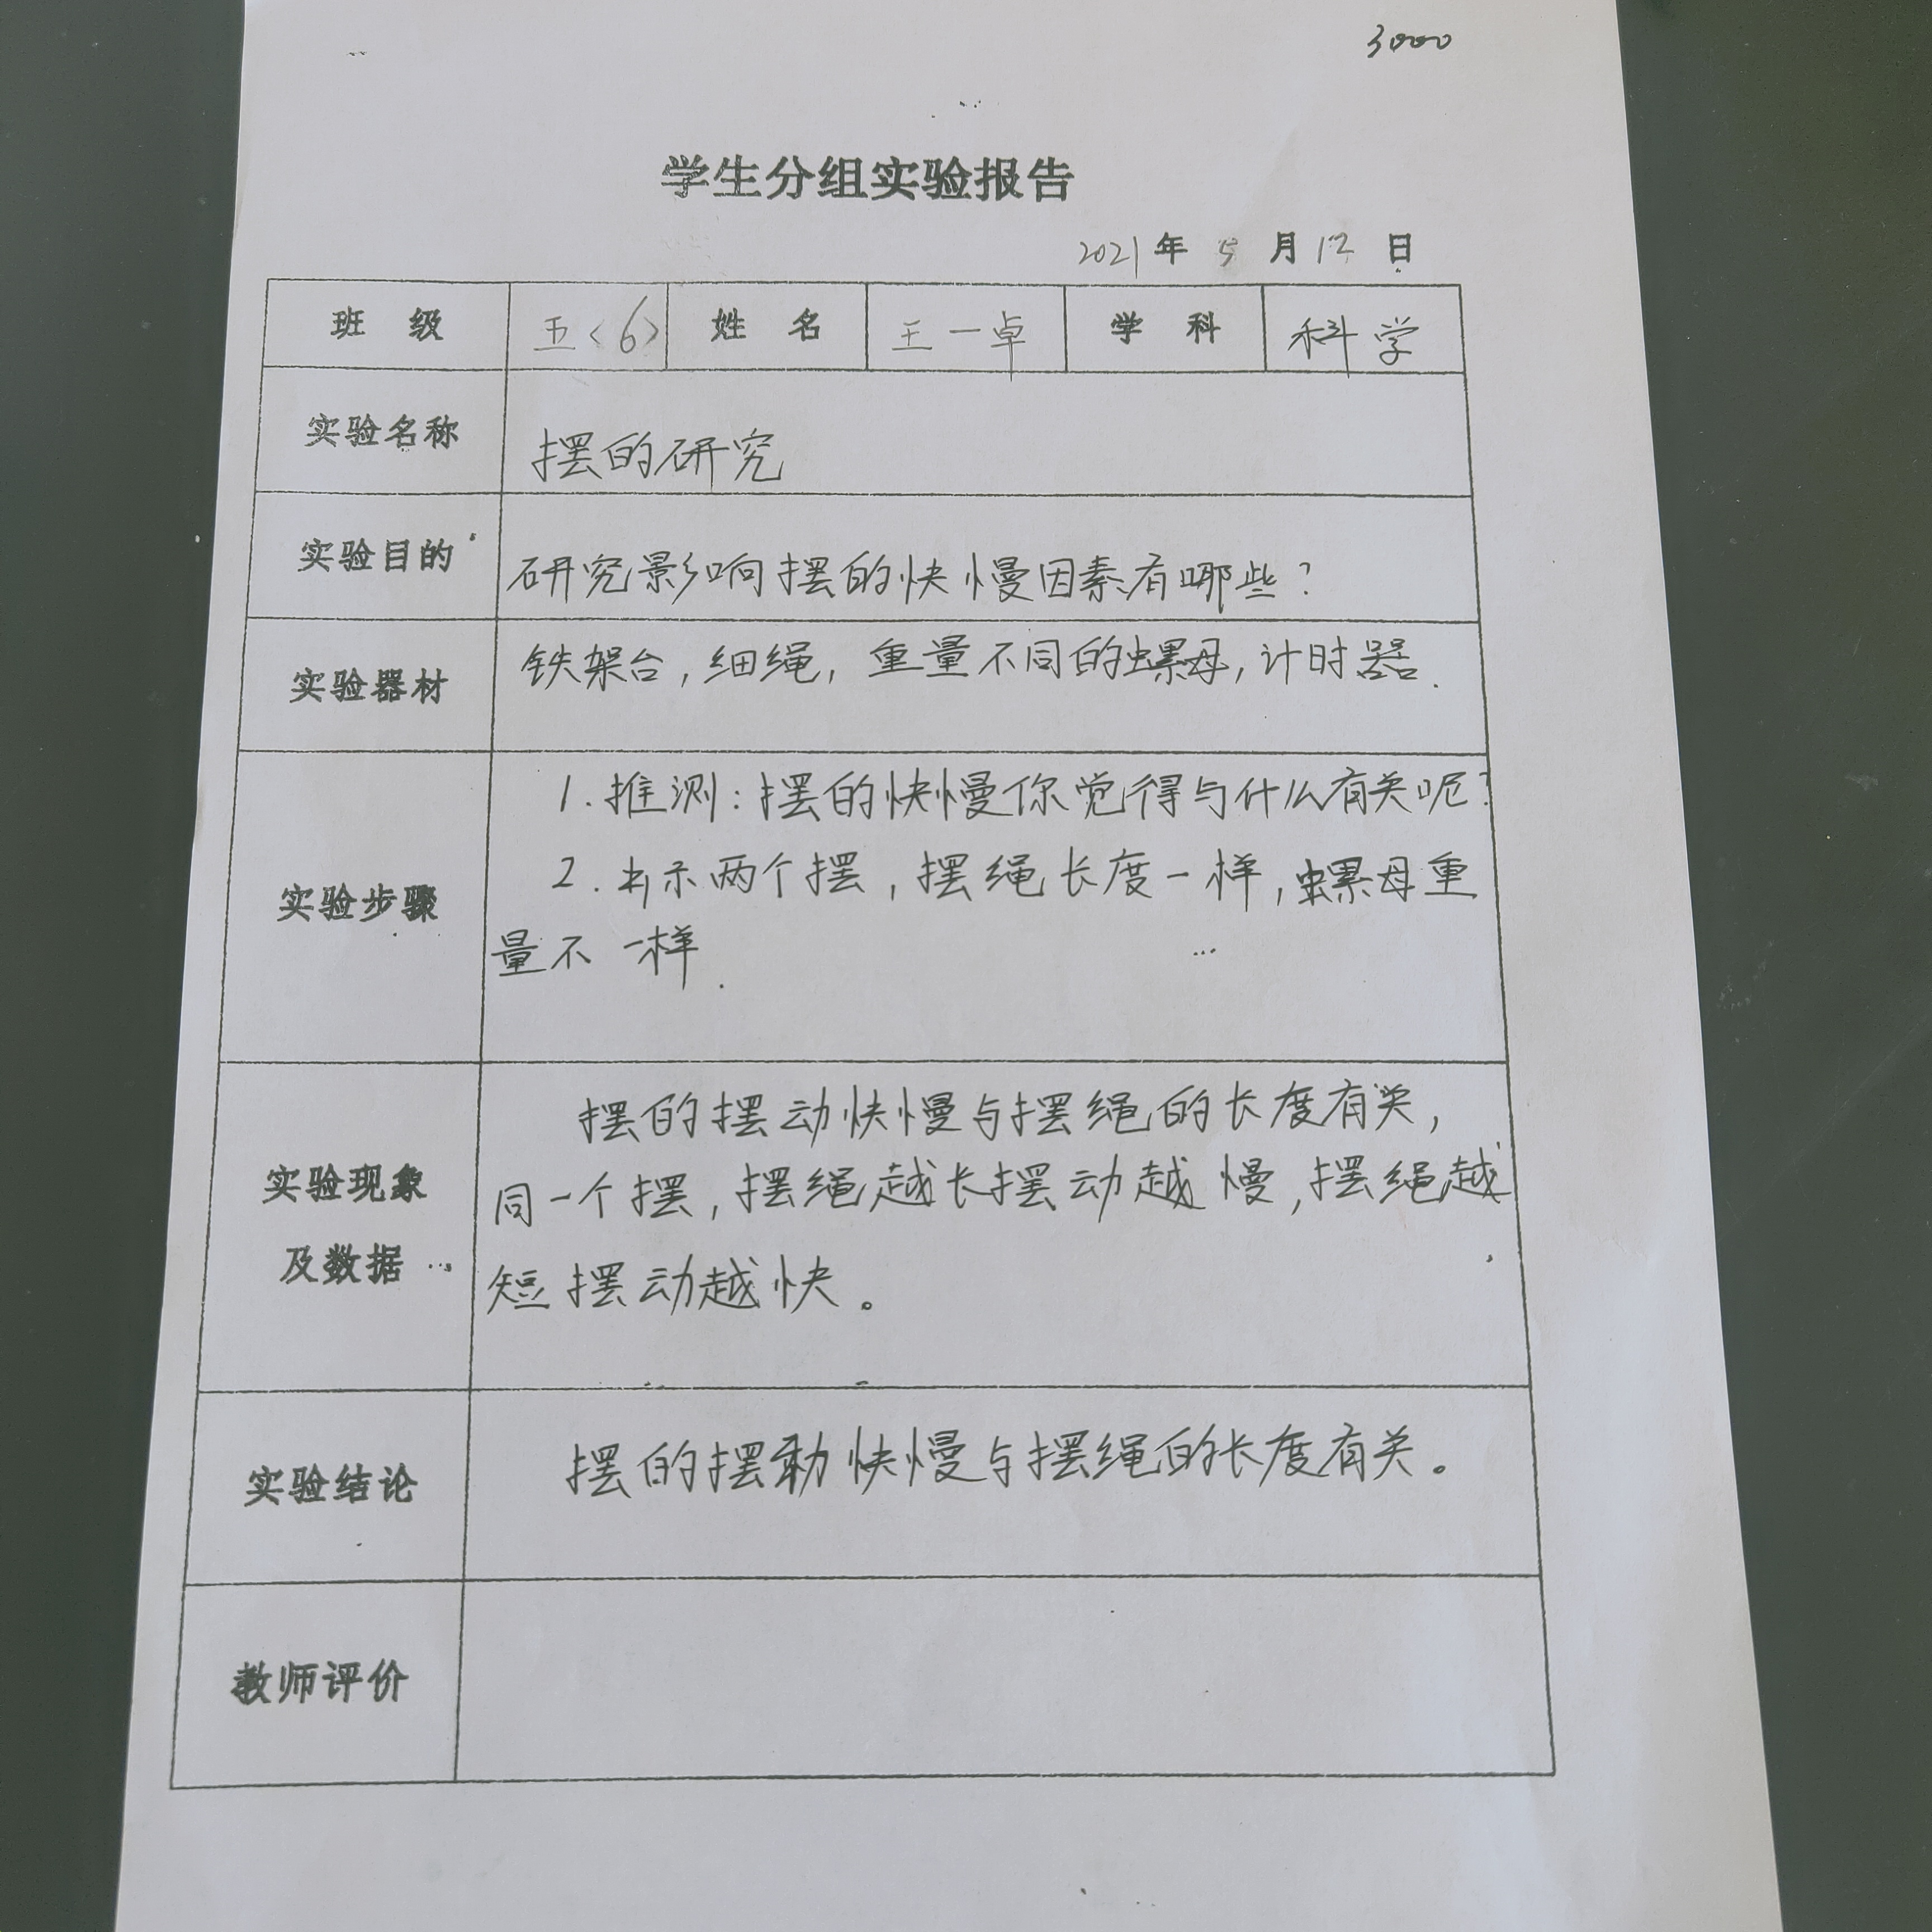 3000
学生分组实验报告
2021年5月12日
班级 五<6> 姓名 王一卓 学科 科学
实验名称 摆的研究
实验目的 研究影响摆的快慢因素有哪些？
实验器材 铁架台，细绳，重量不同的螺母，计时器.
实验步骤
1.推测：摆的快慢你觉得与什么有关呢？
2.出示两个摆，摆绳长度一样，螺母重
量不一样.
实验现象
及数据
摆的摆动快慢与摆绳的长度有关，
同一个摆，摆绳越长摆动越慢，摆绳越
短摆动越快。
实验结论 摆的摆动快慢与摆绳的长度有关。
教师评价